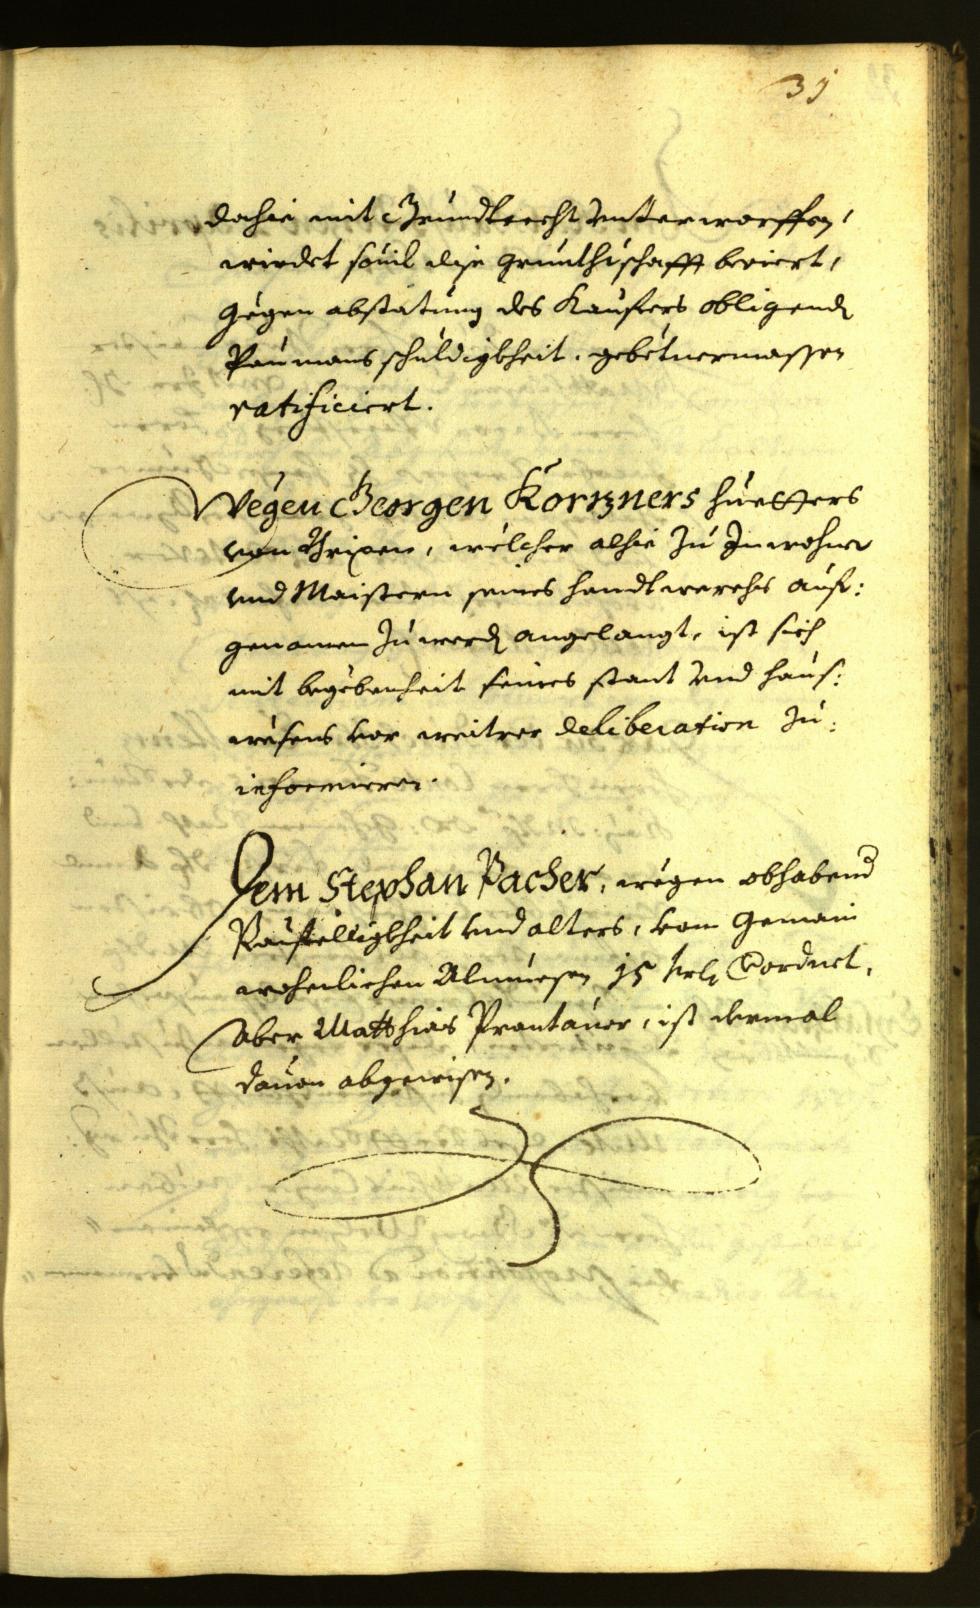 31
dahie mit Grundtrecht vnterworffen,
wirdet souil dise grunthschafft beriert,
gegen abstatung des Kaufers obligend
Paumans schuldigkheit. gebetnermassen
ratificiert.
Wegen Georgen Kortzners Hueffers
von Brixen, welcher alhie zu Inwohner
und Maistern seines handtwerchs auf:
genomen zuwerd angelangt, ist sich
mit begebenheit seines stant vnd haus:
wesens vor weitrer deliberation zu:
informieren.
Dem Stephan Pacher, wegen obhabend
Paufelligkheit vnd alters, vom gemain
wohenlichen Almuesen 15 krl
Aber Matthias Prantauer, ist dermal
dauon abgewisen.